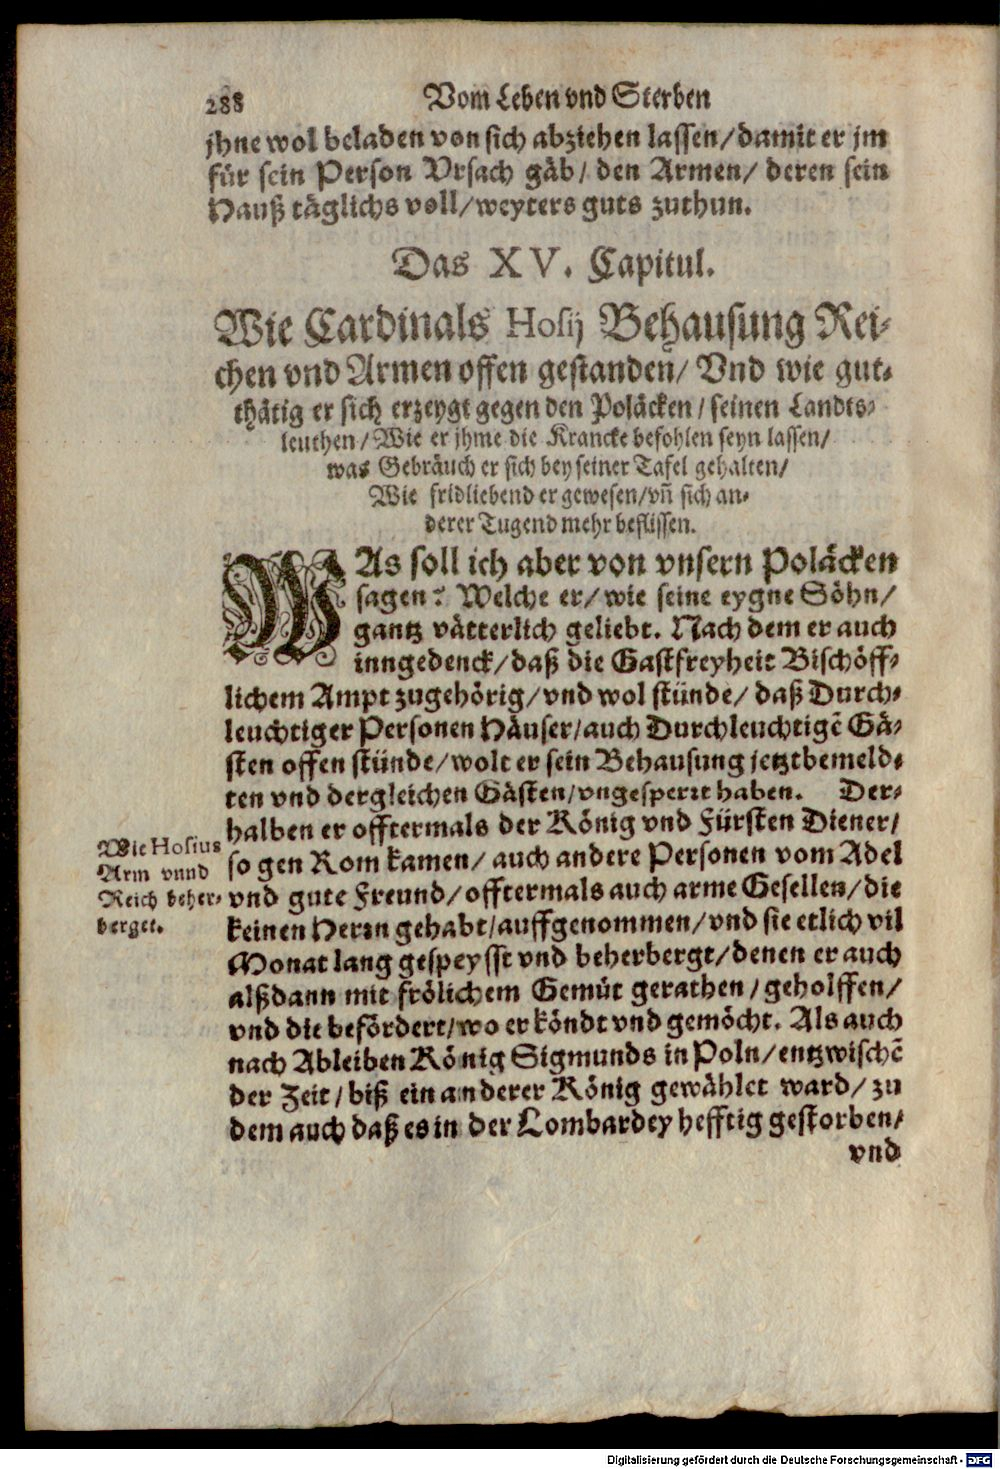 288 Vom Leben vnd Sterben
jhne wol beladen von sich abziehen lassen/damit er jm
für sein Person Vrsach gäb/ den Armen/ deren sein
Hauß täglichs voll/weyters guts zuthun.
Das XV. Capitul.
Wie Cardinals Hosij Behausung Rei-
chen vnd Armen offen gestanden/ Vnd wie gut-
thätig er sich erzeygt gegen den Poläcken/ seinen Landts-
leuthen/ Wie er jhme die Krancke befohlen seyn lassen/
was Gebräuch er sich bey seiner Tafel gehalten/
Wie fridliebend er gewesen/vñ sich an-
derer Tugend mehr beflissen.
WAs soll ich aber von vnsern Poläcken
sagen? Welche er/wie seine eygne Söhn/
gantz vätterlich geliebt. Nach dem er auch
inngedenck/daß die Gastfreyheit Bischöff-
lichem Ampt zugehörig/vnd wol stünde/ daß Durch-
leuchtiger Personen Häuser/auch Durchleuchtigē Gä-
sten offen stünde/wolt er sein Behausung jetztbemeld-
ten vnd dergleichen Gästen/vngesperrt haben. Der-
halben er offtermals der König vnd Fürsten Diener/
so gen Rom kamen/ auch andere Personen vom Adel
vnd gute Freund/offtermals auch arme Gesellen/die
keinen Herrn gehabt/auffgenommen/vnd sie etlich vil
Monat lang gespeysst vnd beherbergt/denen er auch
alßdann mit frölichem Gemüt gerathen/geholffen/
vnd die befördert/wo er köndt vnd gemöcht. Als auch
nach Ableiben König Sigmunds in Poln/entzwischē
der Zeit/biß ein anderer König gewählet ward/ zu
dem auch daß es in der Lombardey hefftig gestorben/
vnd
Wie Hosius
Arm vnnd
Reich beher-
berget.
Digitalisierung gefördert durch die Deutsche Forschungsgemeinschaft - DFG